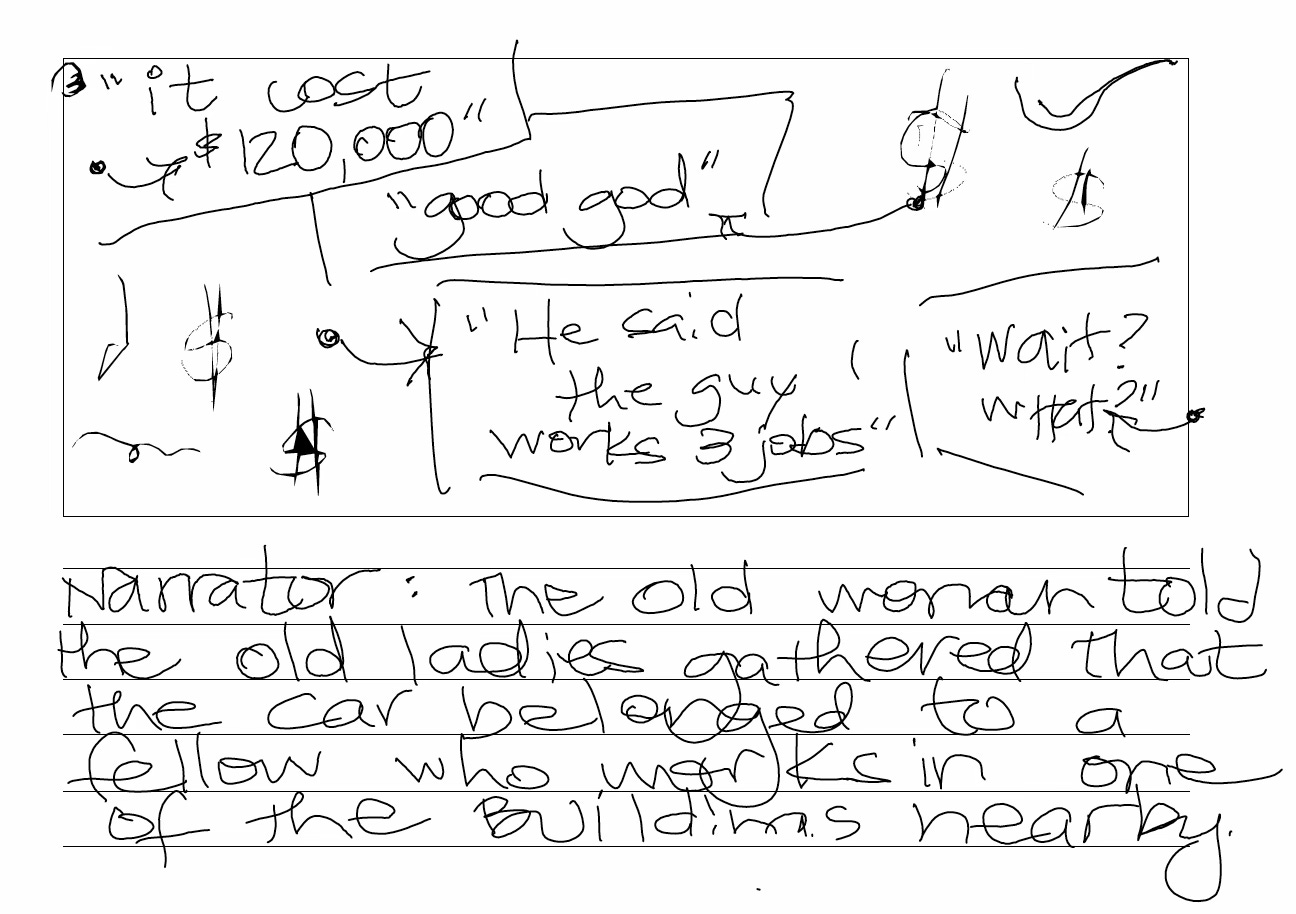 "it cost
$120,000"
"good god"
$
$
$
$
"He said
the guy
works 3 jobs"
"Wait?
what?"
Narrator: The old woman told
the old ladies gathered that
the car belonged to a
fellow who works in one
of the Buildings nearby.